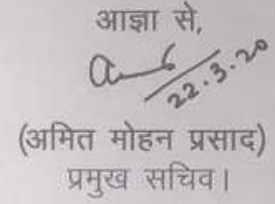 आज्ञा से,
22.3.20
(अमित मोहन प्रसाद)
प्रमुख सचिव।